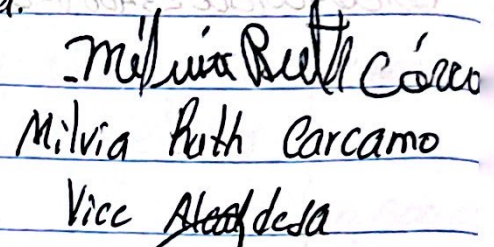 Milvia Ruth Cárca
Milvia Ruth Carcamo
Vice Alcaldesa